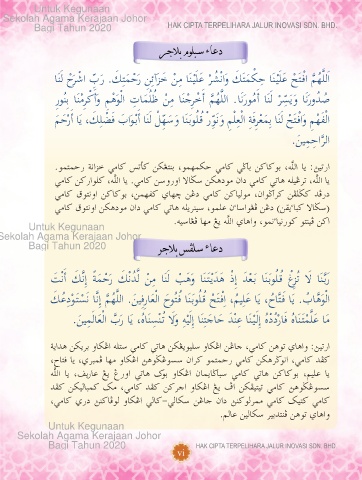 Untuk Kegunaan
Sekolah Agama Kerajaan Johor
Bagi Tahun 2020
HAK CIPTA TERPELIHARA JALUR INOVASI SDN. BHD.
دعاء سبلوم بلاجر
اللَّهُمَّ افْتَحْ عَلَيْنَا حِكْمَتَكَ وَانْشُرْ عَلَيْنَا مِنْ خَزَائِنِ رَحْمَتِكَ. رَبِّ اشْرَحْ لَنَا
صُدُورَنَا وَيَسِّرْ لَنَا أُمُورَنَا. اللَّهُمَّ أَخْرِجْنَا مِنْ ظُلُمَاتِ الْوَهْمِ وَأَكْرِمْنَا بِنُورِ
الْفَهْمِ وَافْتَحْ لَنَا بِمَعْرِفَةِ الْعِلْمِ وَنَوِّرْ قُلُوبَنَا وَسَهِّلْ لَنَا أَبْوَابَ فَضْلِكَ، يَا أَرْحَمَ
الرَّاحِمِينَ.
ارتين: يا الله، بوكاكن باݢي كامي حكمهمو، بنتڠكن كأتس كامي خزانة رحمتمو.
يا الله، ترڠيله هاتي كامي دان مودهكن سݢالا اوروسن كامي. يا الله، كلواركن كامي
درڤد ككلڤن كراݢوان، مولياكن كامي دڠن چهاي كفهمن، بوكاكن اونتوق كامي
دڠن علمو، سيناريله هاتي كامي دان مودهكن اونتوق كامي
اكن ڤينتو كورنيأنمو، واهاي الله يڠ مها ڤڠاسيه.
Untuk Kegunaan
Sekolah Agama Kerajaan Johor
Bagi Tahun 2020
دعاء سلڤس بلاجر
رَبَّنَا لَا تُزِغْ قُلُوبَنَا بَعْدَ إِذْ هَدَيْتَنَا وَهَبْ لَنَا مِنْ لَدُنْكَ رَحْمَةً إِنَّكَ أَنْتَ
الْوَهَّابُ. يَا فَتَّاحُ، يَا عَلِيمُ، افْتَحْ قُلُوبَنَا فُتُوحَ الْعَارِفِينَ. اللَّهُمَّ إِنَّا نَسْتَوْدِعُكَ
مَا عَلَّمْتَنَاهُ فَارْدُدْهُ إِلَيْنَا عِنْدَ حَاجَتِنَا إِلَيْهِ وَلَا تُنْسِنَاهُ، يَا رَبَّ الْعَالَمِينَ.
ارتين: واهاي توهن كامي، جاڠن اڠكاو سليويڠكن هاتي كامي ستله اڠكاو بريكن هداية
كڤد كامي، انوݢرهكن كامي رحمتمو كران سسوڠݢوهڽ اڠكاو مها ڤمبري، يا فتاح،
يا عليم، بوكاكن هاتي كامي سباݢايمان اڠكاو بوك هاتي اورڠ يڠ عاريف، يا الله
سسوڠݢوهڽ كامي تيتيڤكن اڤ يڠ اڠكاو اجركن كڤد كامي، مک كمباليكن كڤد
كامي كتيک كامي ممرلوكنڽ دان جاڠن سكالي-كالي اڠكاو لوڤاكنڽ دري كامي،
واهاي توهن ڤنتدبير سكالين عالم.
Untuk Kegunaan
Sekolah Agama Kerajaan Johor
Bagi Tahun 2020
HAK CIPTA TERPELIHARA JALUR INOVASI SDN. BHD
vi